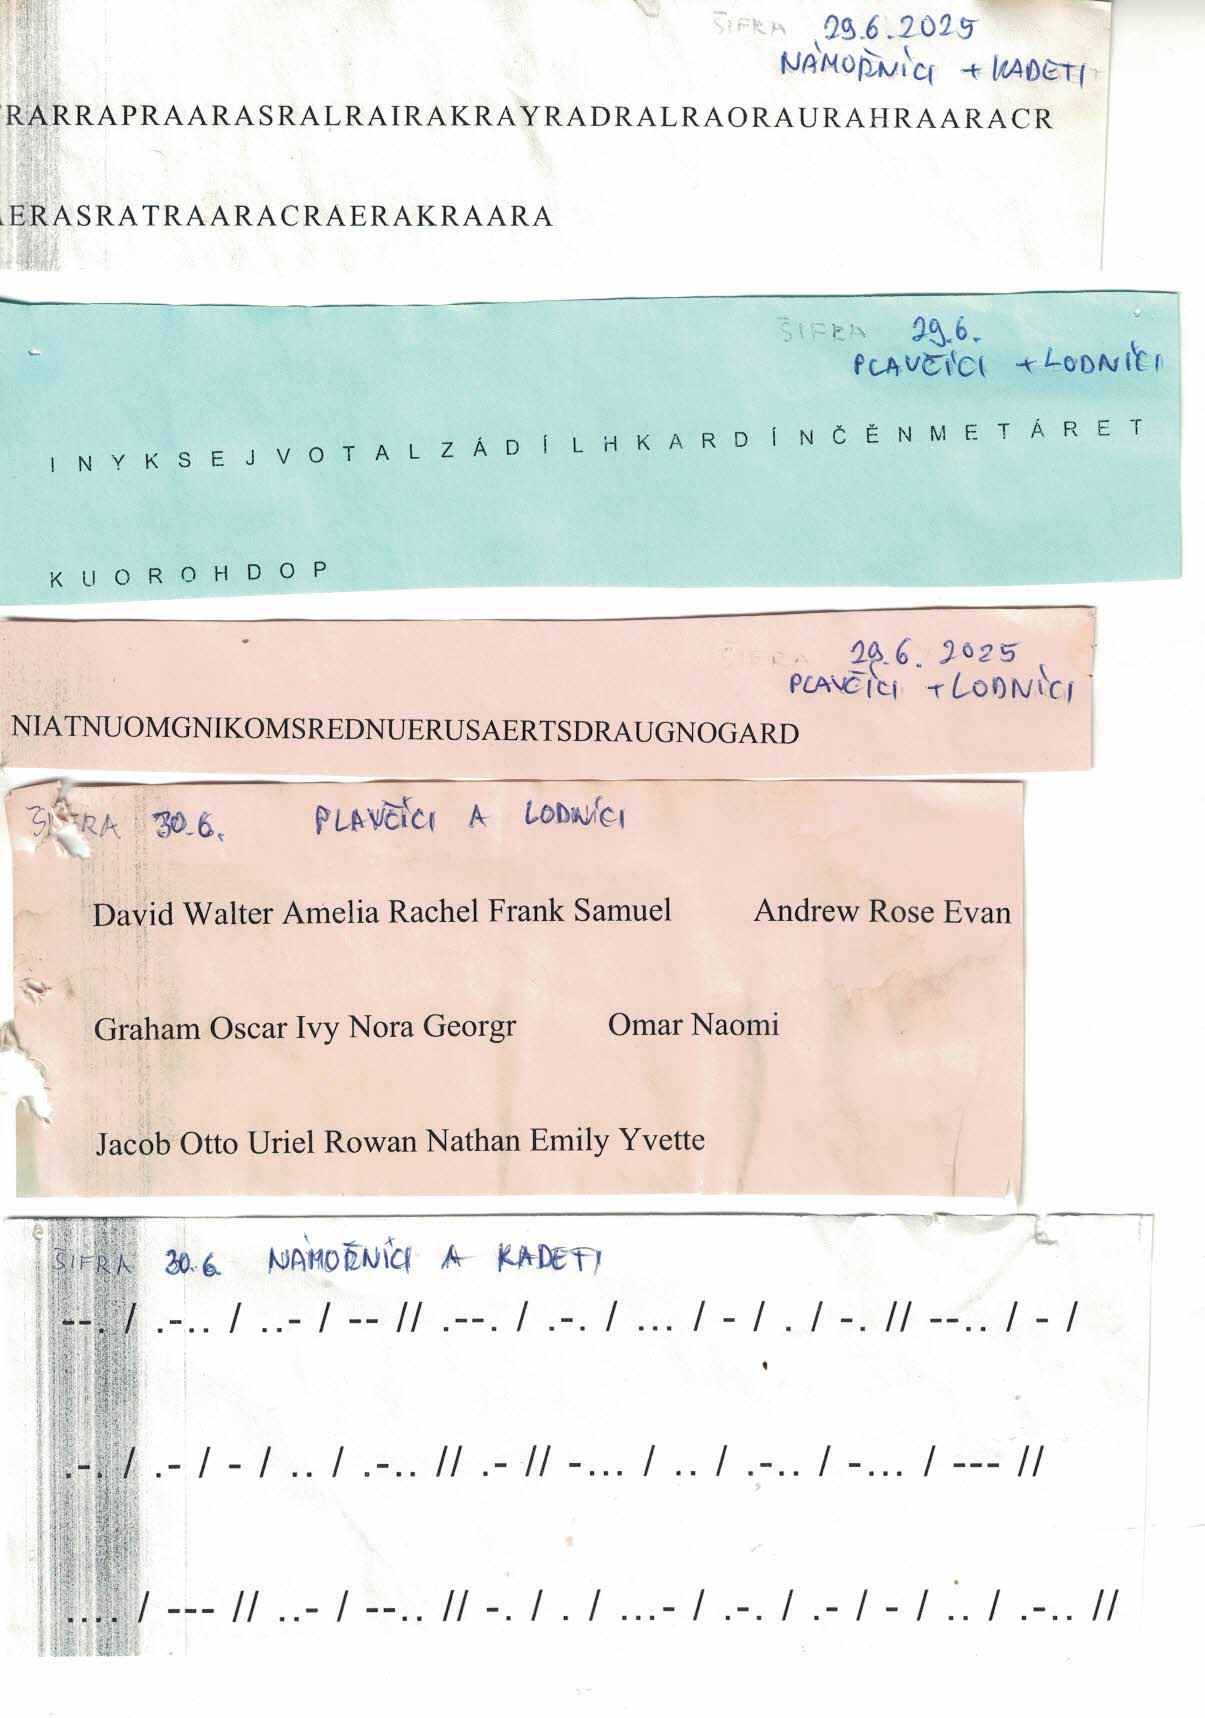 ŠIFRA 29.6.2025
NÁMOŘNÍCI + KADETI
RARRAPRAARASRALRAIRAKRAYRADRALRAORAURAHRAARACR
ERASRATRAARACRAERAKRAARA
ŠIFRA 29.6.
PLAVČÍCI + LODNÍCI
I N Y K S E J V O T A L Z Á D Í L H K A R D Í N Č Ě N M E T Á R E T
K U O R O H D O P
ŠIFRA 29.6. 2025
PLAVČÍCI + LODNÍCI
NIATNUOMGNIKOMSREDNUERUSAERTSDRAUGNOGARD
ŠIFRA 30.6. PLAVČÍCI A LODNÍCI
David Walter Amelia Rachel Frank Samuel Andrew Rose Evan
Graham Oscar Ivy Nora Georgr Omar Naomi
Jacob Otto Uriel Rowan Nathan Emily Yvette
ŠIFRA 30.6. NÁMOŘNÍCI A KADETI
--. / .-.. / ..- / -- // .--. / .-. / ... / - / . / -. // --.. / - /
.-. / .- / - / .. / .-.. // .- // -... / .. / .-.. / -... / --- //
.... / --- // ..- / --.. // -. / . / ...- / .-. / .- / - / .. / .-.. //